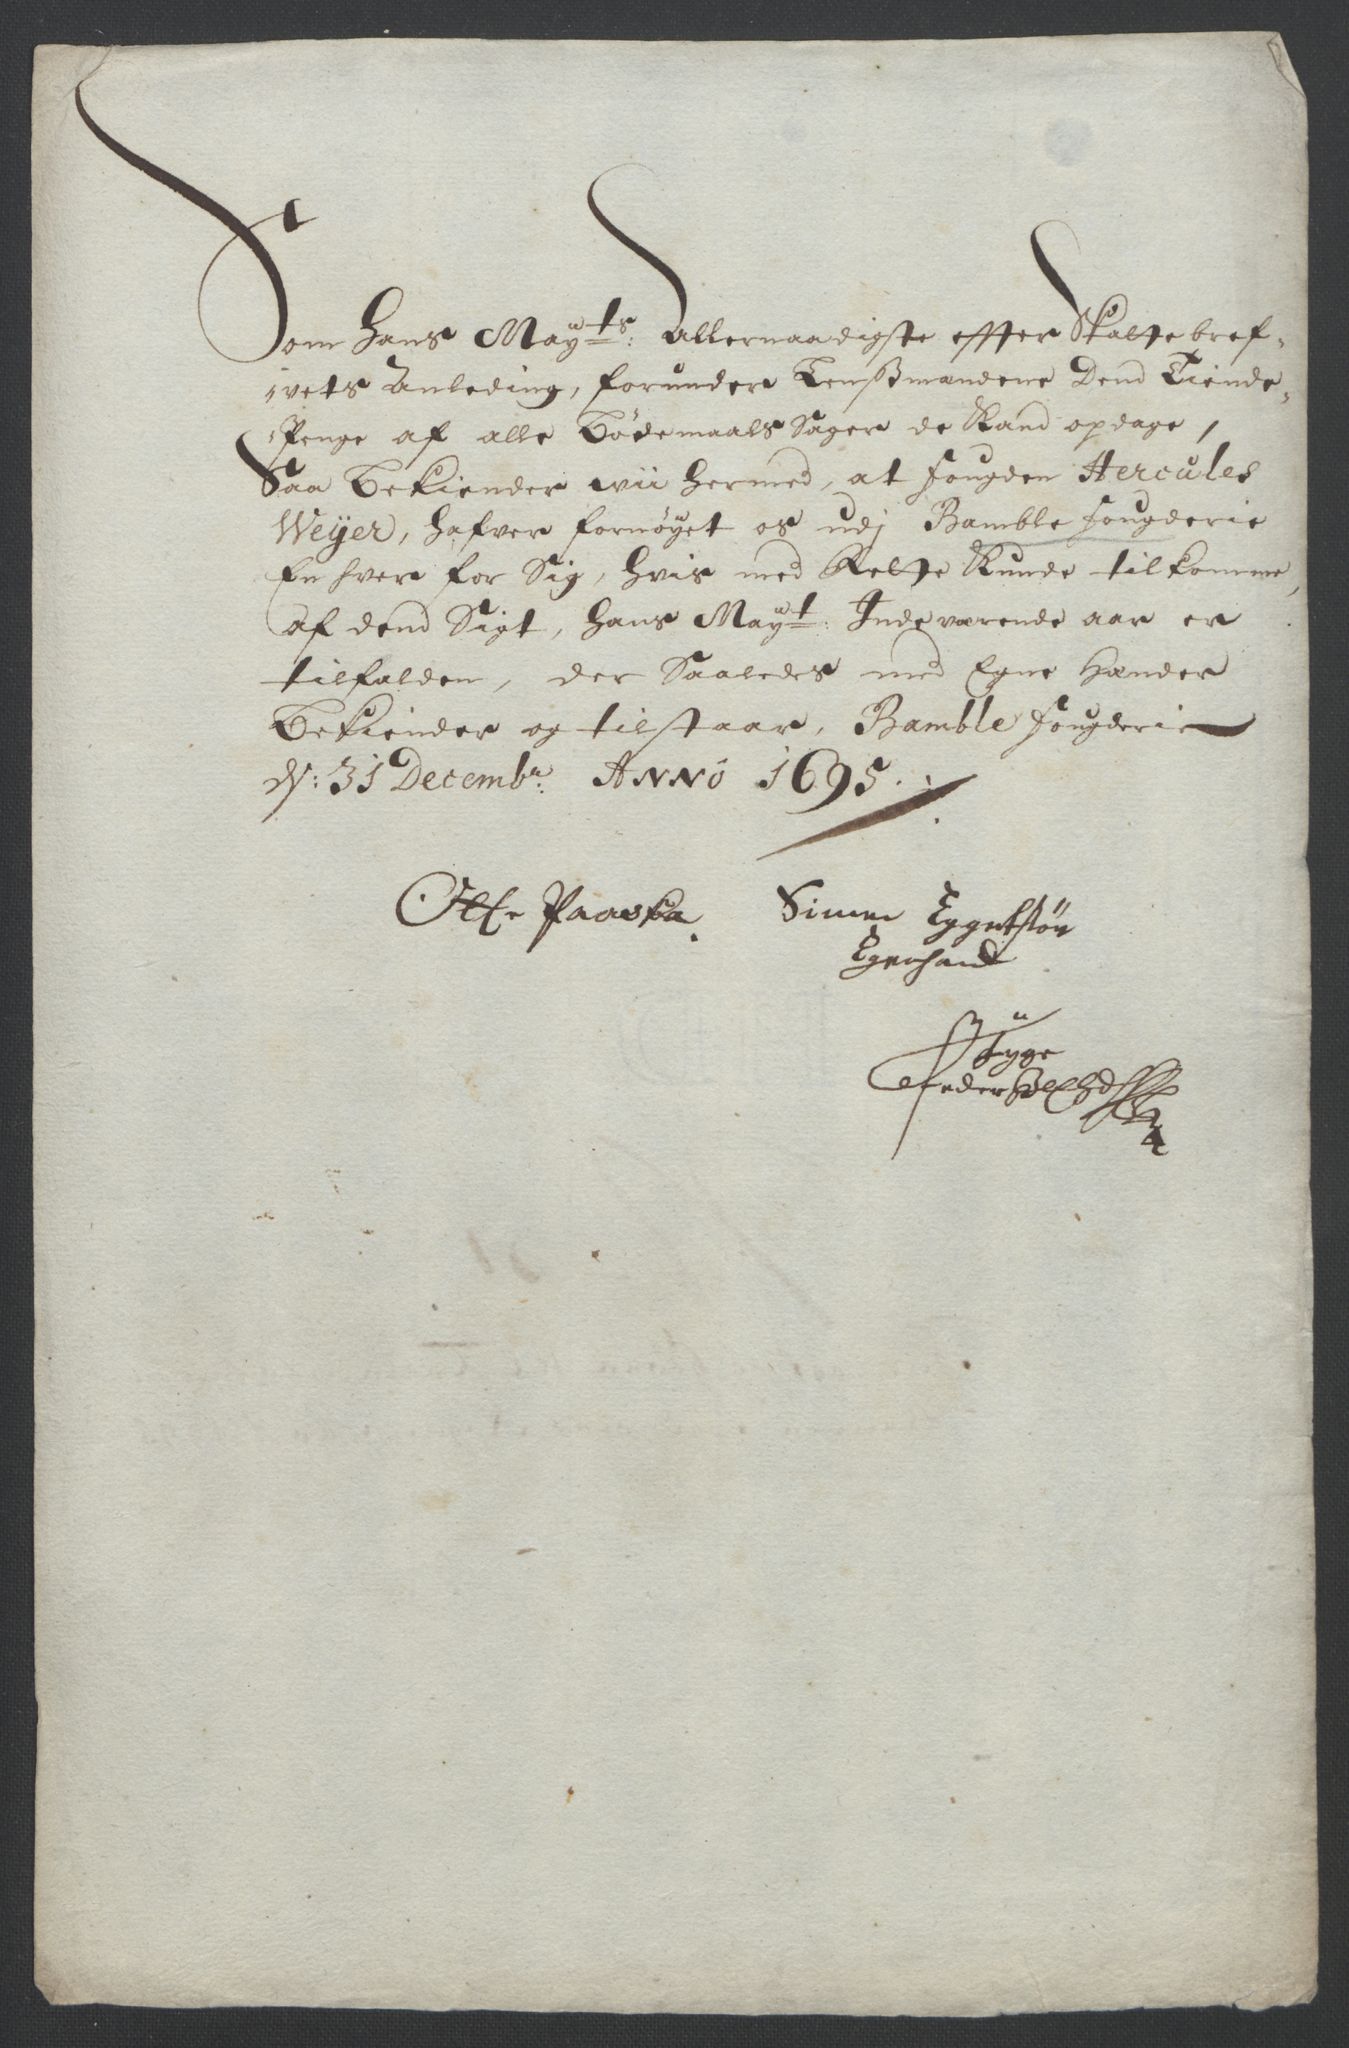 Som Hans Mayts: Allernaadigste effter Skattebref-
vets Anleding, forunder Lensßmændene Dend Tiende-
Penge af alle Bödemaals Sager de kand opdage,
Saa Bekiender wii hermed, at fougden Hercules
Weÿer, hafver fornöÿet os udj Bamble fougderie
En hver for Sig, hvis med Rette kunde tilkomme,
af dend Sigt, Hans Mayt: Indeværende aar er
tilfalden, der Saaledes med Egne Hænder
Bekiender og tilstaar, Bamble fougderie
ds: 31 Decembr: Anno 1695.
Simen
Egenhand
Tyge
Pedersen